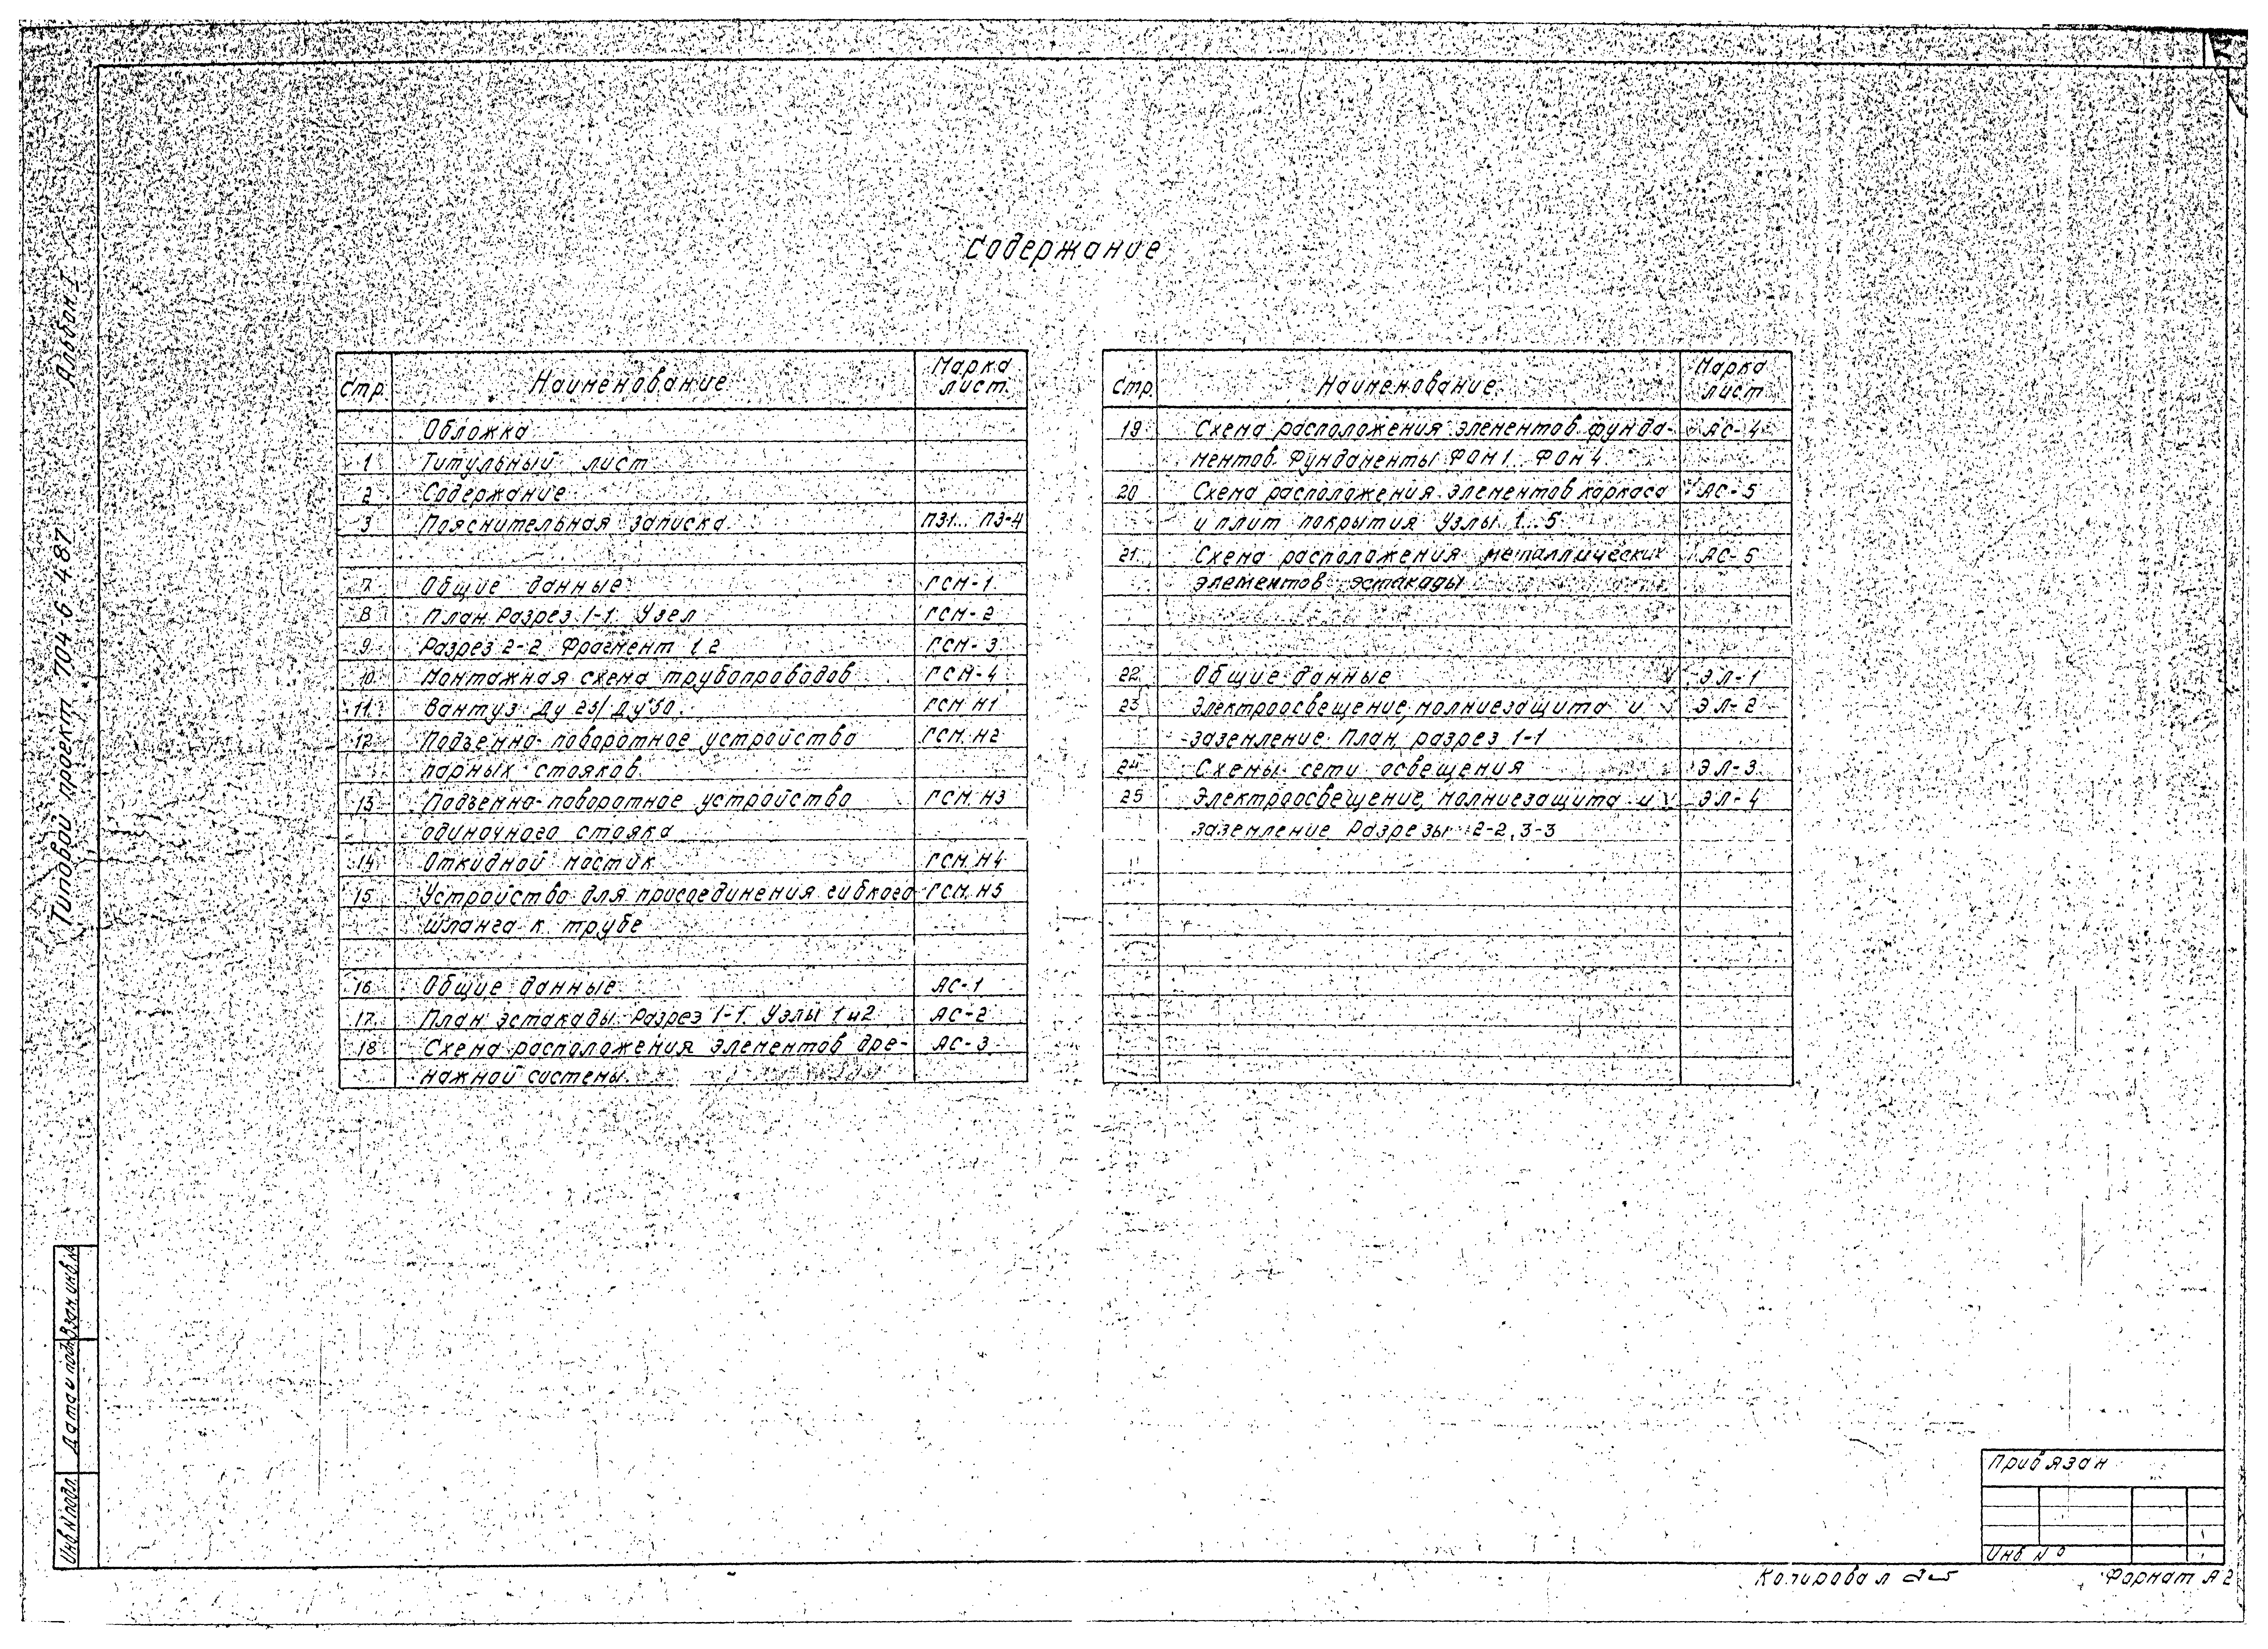 Содержание
Альбом I
Типовой проект 704-6-487
Стр. Наименование Марка лист.
Обложка
1 Титульный лист
2 Содержание
3 Пояснительная записка ПЗ1... ПЗ-4
7 Общие данные ГСМ-1
8 План. Разрез 1-1. Узел ГСМ-2
9 Разрез 2-2. Фрагмент 1,2 ГСМ-3
10 Монтажная схема трубопроводов ГСМ-4
11 Вантуз Ду 25/Ду 50. ГСМ.Н1
12 Подъемно-поворотное устройство ГСМ.Н2
парных стояков
13 Подъемно-поворотное устройство ГСМ.Н3
одиночного стояка
14 Откидной мостик ГСМ.Н4
15 Устройство для присоединения гибкого ГСМ.Н5
шланга к трубе
16 Общие данные АС-1
17 План эстакады. Разрез 1-1. Узлы 1и2 АС-2
18 Схема расположения элементов дре- АС-3
нажной системы.
Стр Наименование Марка лист
19 Схема расположения элементов фунда- АС-4
ментов. Фундаменты ФОМ1...ФОМ4
20 Схема расположения элементов каркаса АС-5
и плит покрытия Узлы 1...5
21 Схема расположения металлических АС-5
элементов эстакады
22 Общие данные ЭЛ-1
23 Электроосвещение, молниезащита и ЭЛ-2
заземление. План, разрез 1-1
24 Схемы сети освещения ЭЛ-3
25 Электроосвещение, молниезащита и ЭЛ-4
заземление Разрезы 2-2, 3-3
Взам.инв.№
Дата и подп.
Инв.N подл.
Привязан
Инв N°
Копировал
Формат А2